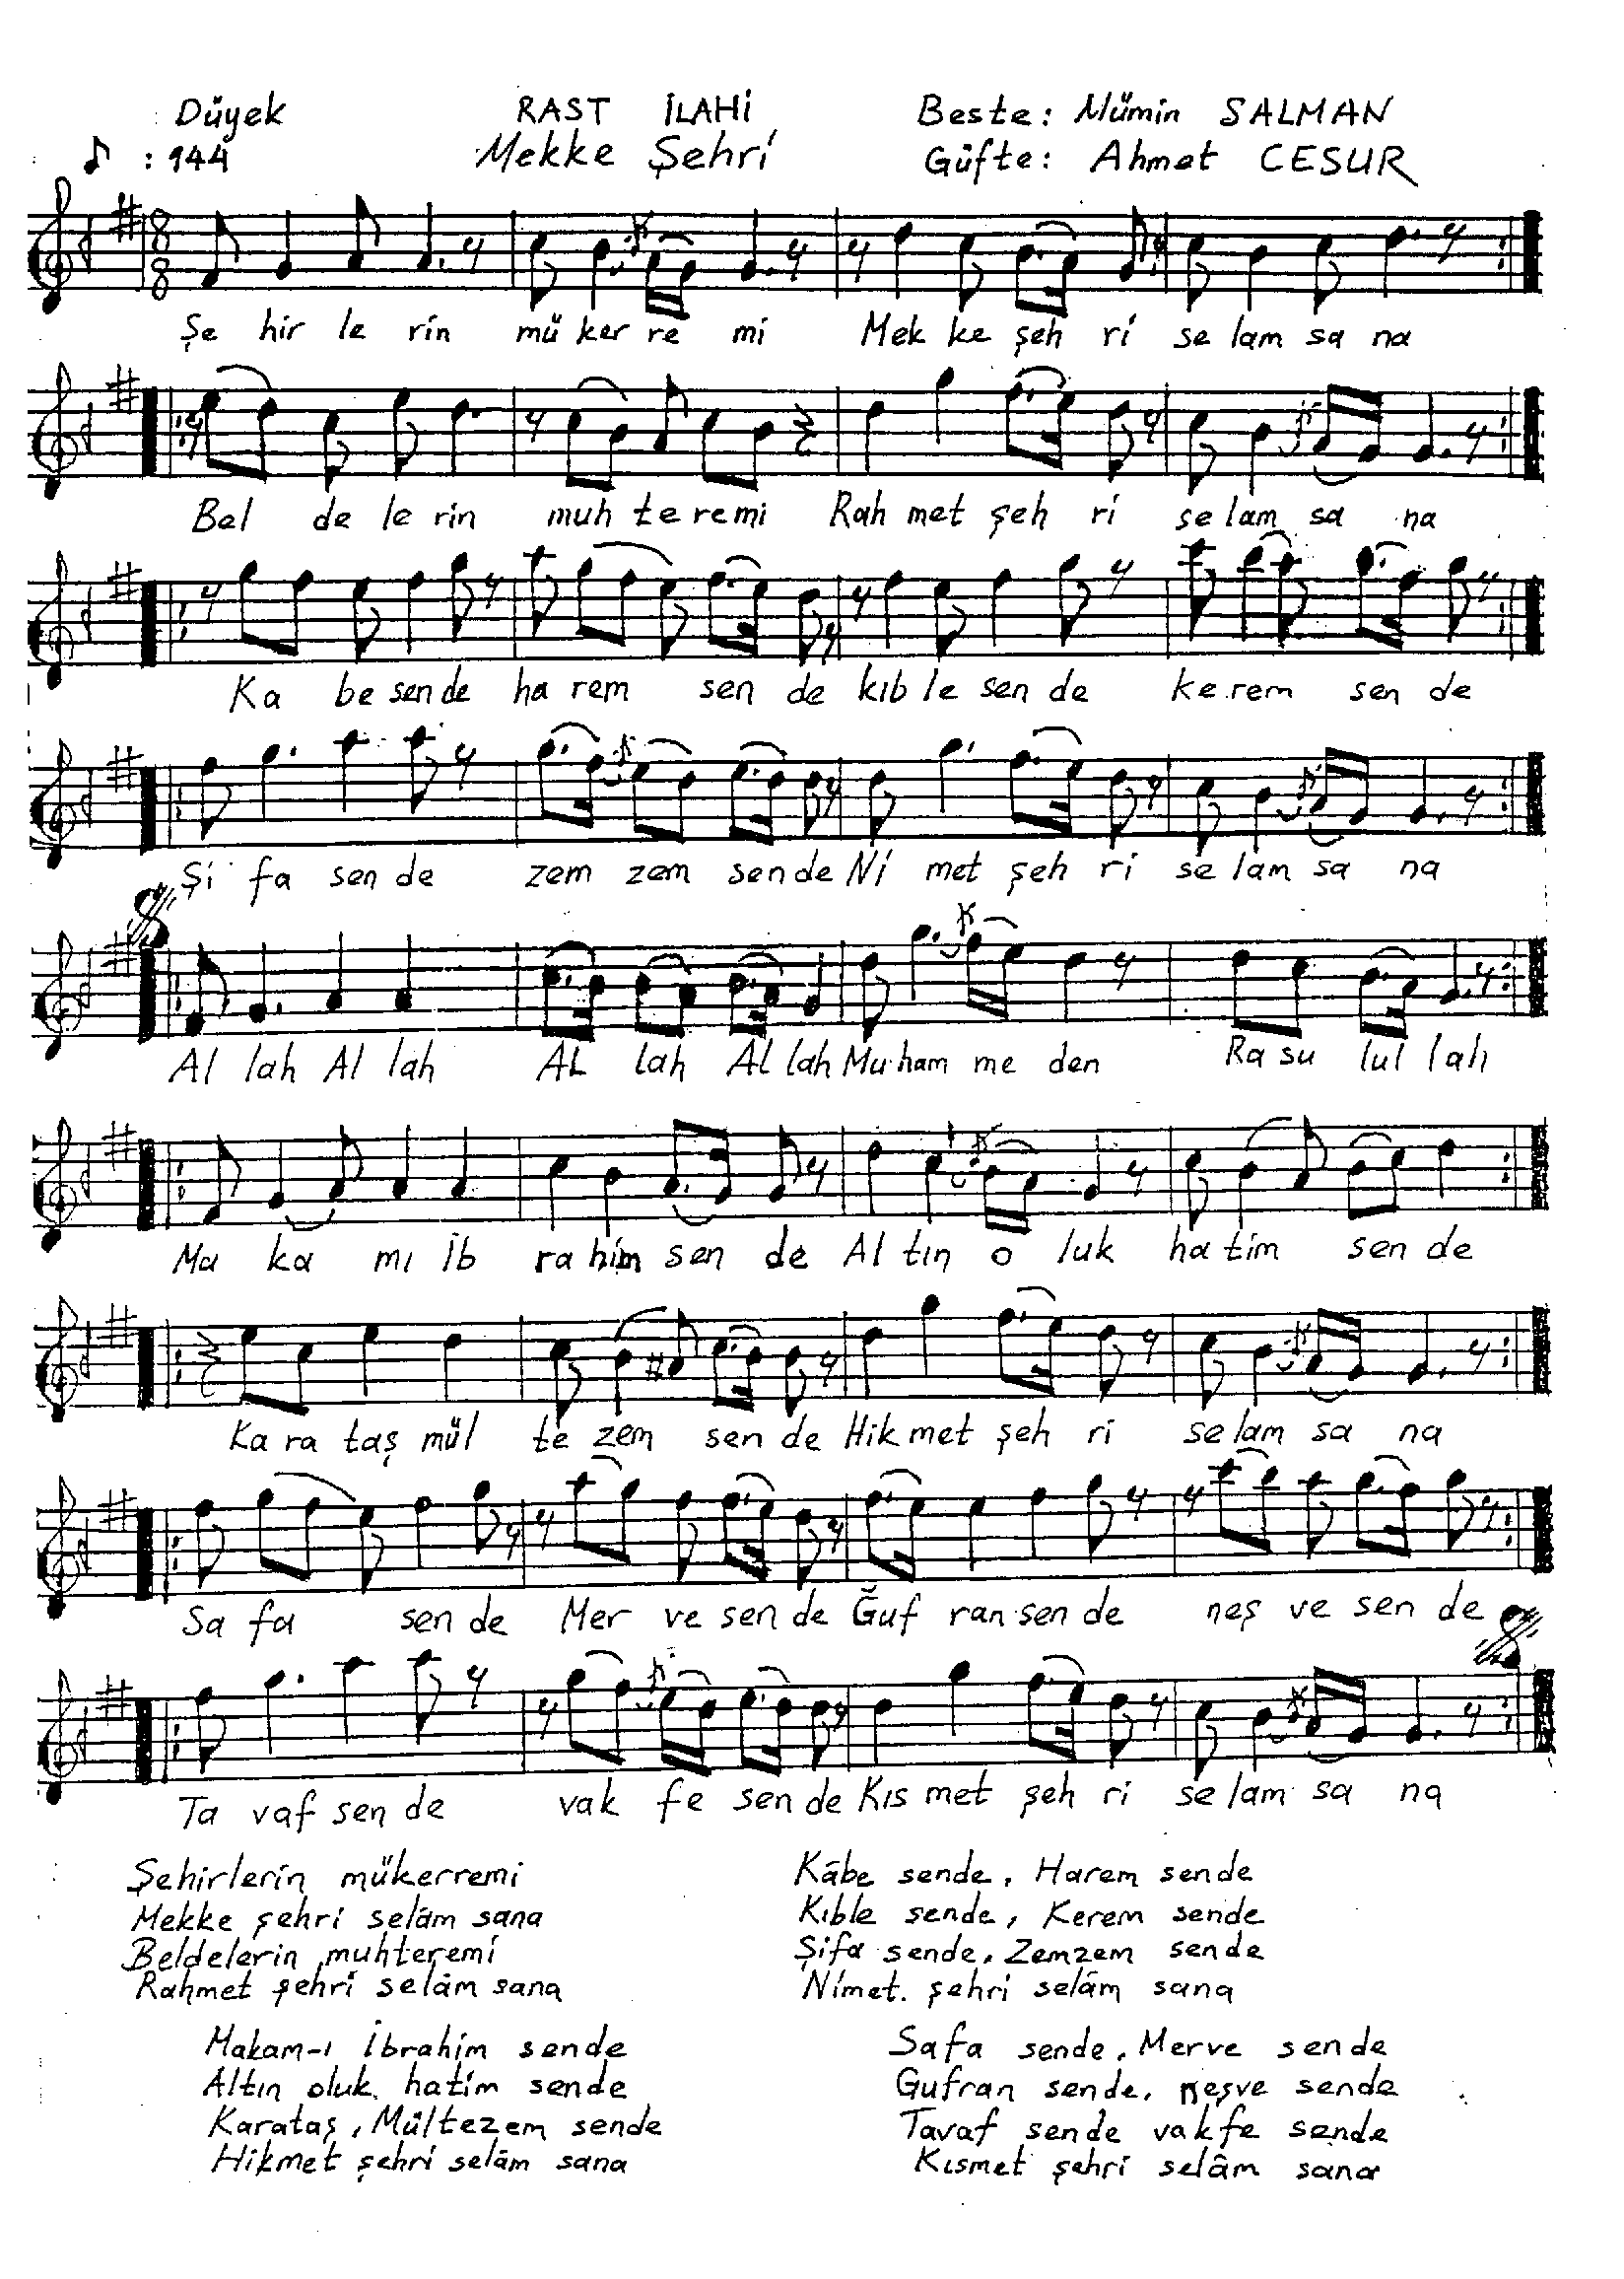 Düyek RAST İLAHİ Beste: Mümin SALMAN
♪ : 144 Mekke Şehri Güfte: Ahmet CESUR
8 8
Şe hir le rin mü ker re mi Mek ke şeh ri se lam sa na
Bel de le rin muh te re mi Rah met şeh ri se lam sa na
Ka be sen de ha rem sen de kıb le sen de ke rem sen de
Şi fa sen de zem zem sen de Ni met şeh ri se lam sa na
Al lah Al lah AL lah Al lah Mu ham me den Ra su lul lah
Ma ka mı İb ra him sen de Al tın o luk ha tim sen de
Ka ra taş mül te zem sen de Hik met şeh ri se lam sa na
Sa fa sen de Mer ve sen de Ğuf ran sen de neş ve sen de
Ta vaf sen de vak fe sen de Kıs met şeh ri se lam sa na
Şehirlerin mükerremi
Mekke şehri selâm sana
Beldelerin muhteremi
Rahmet şehri selâm sana
Kâbe sende, Harem sende
Kıble sende, Kerem sende
Şifa sende, Zemzem sende
Nimet. şehri selâm sana
Makam-ı İbrahim sende
Altın oluk, hatim sende
Karataş, Mültezem sende
Hikmet şehri selâm sana
Safa sende, Merve sende
Gufran sende, neşve sende
Tavaf sende vakfe sende
Kısmet şehri selâm sana